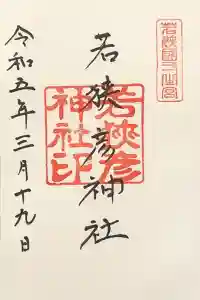 若狭國一之宮
若狹彦神社
若狹彦
神社印
令和五年三月十九日